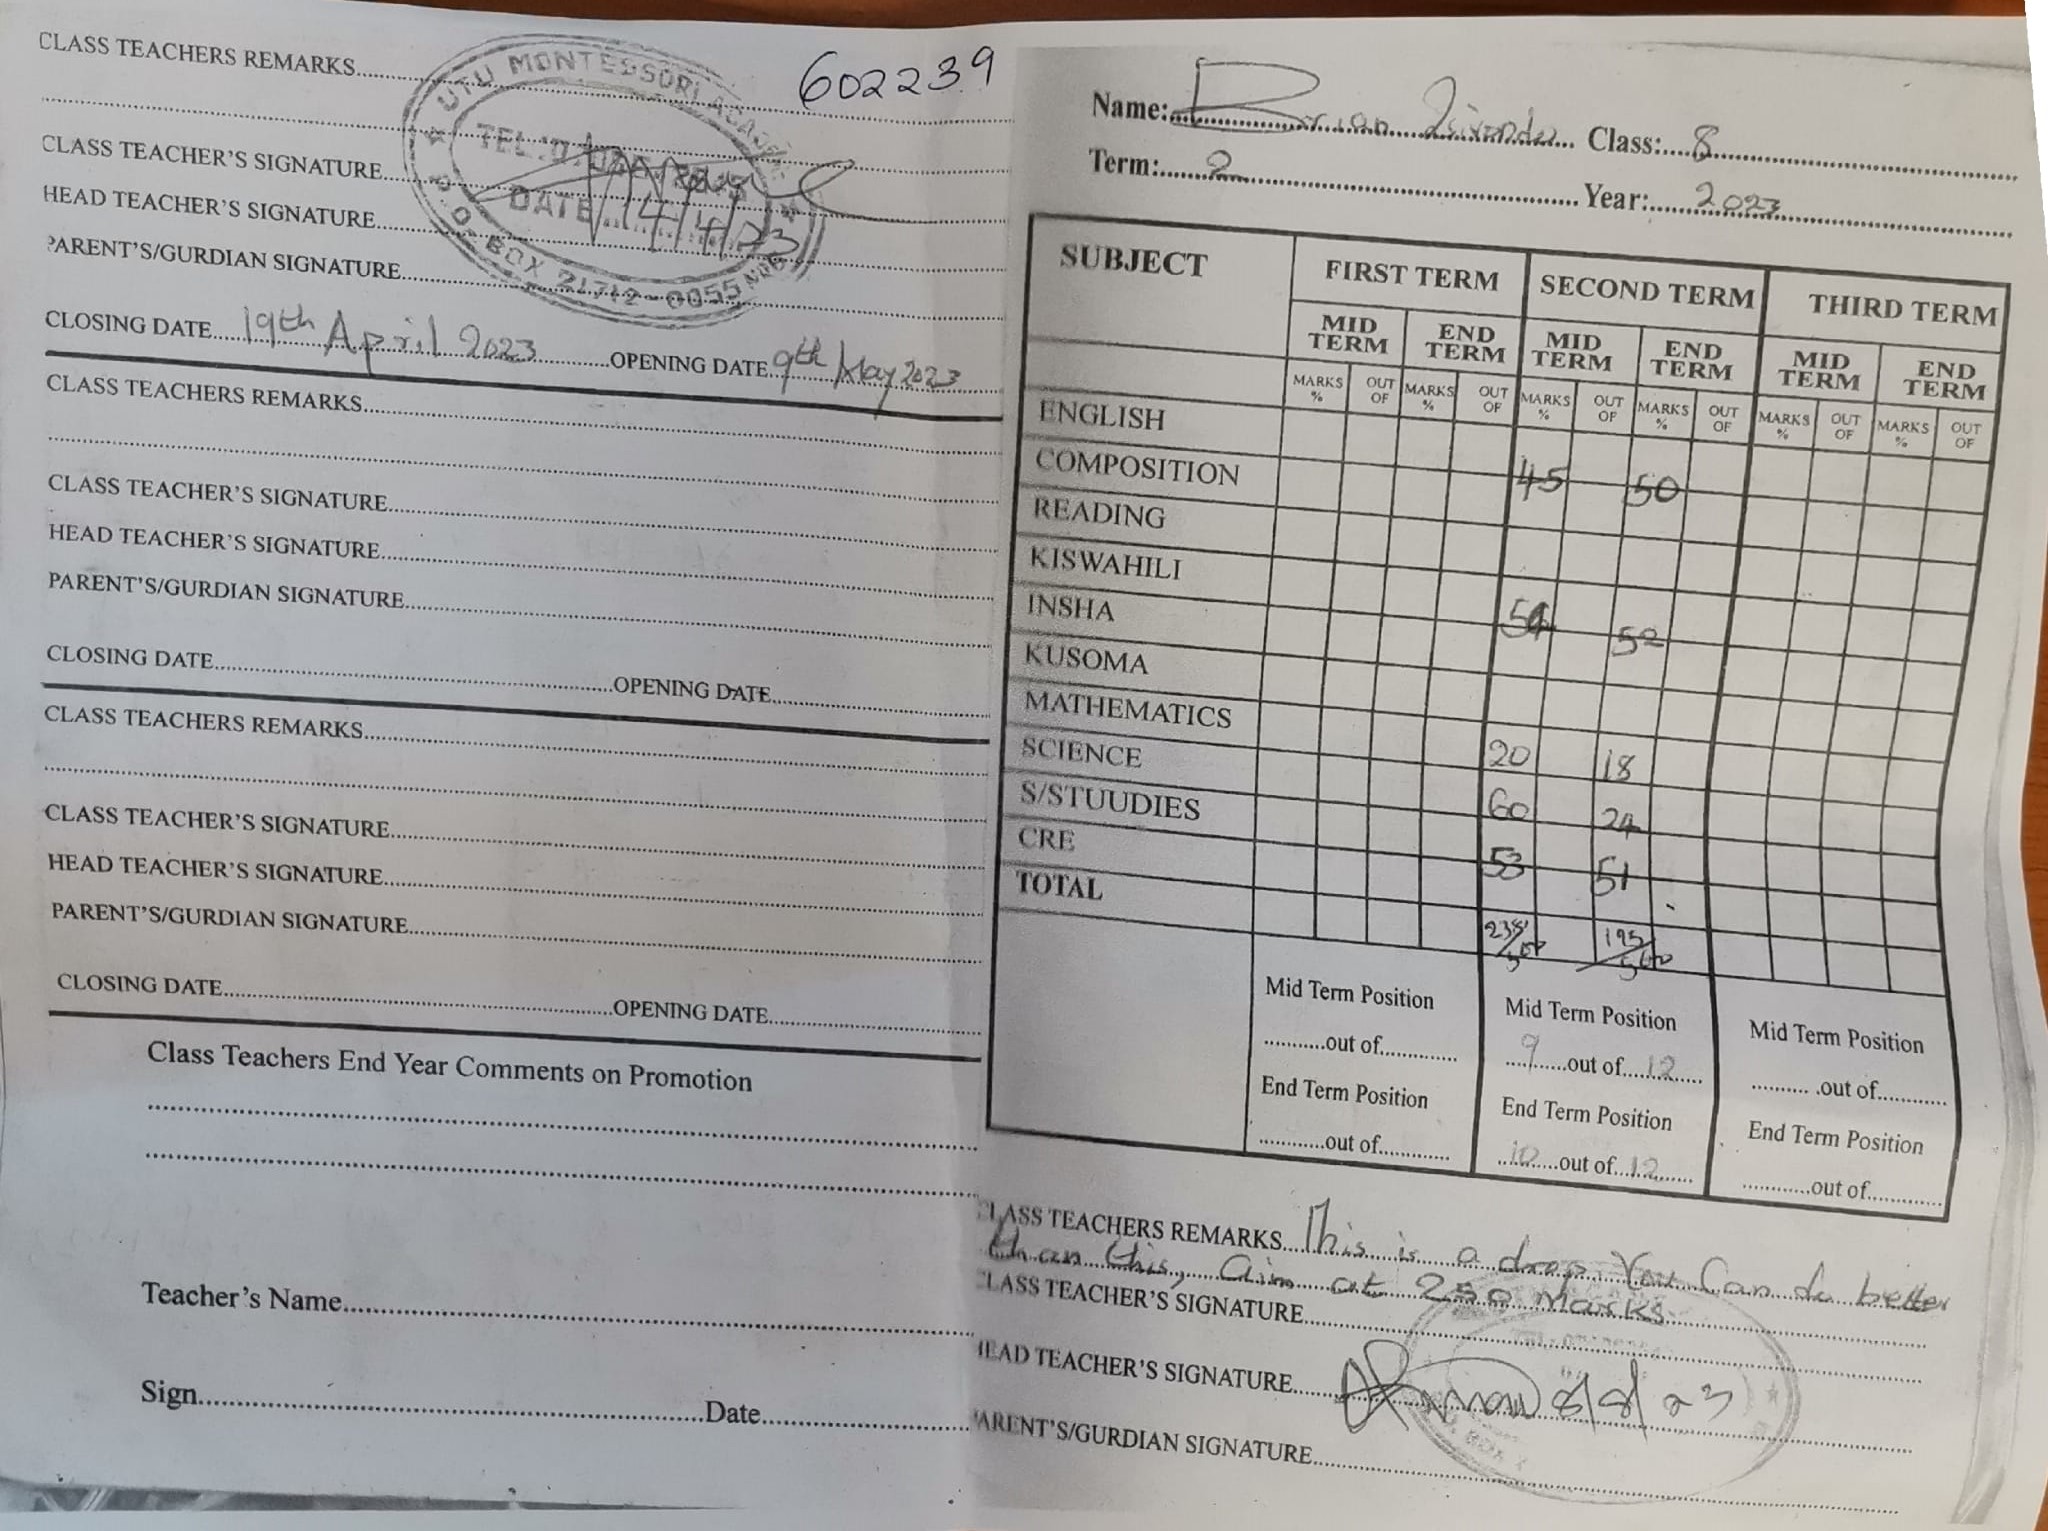 CLASS TEACHERS REMARKS
602239
UTU MONTESSORI
TEL
DATE 14/4/23
P.O. BOX 21712 - 0055
CLASS TEACHER'S SIGNATURE
HEAD TEACHER'S SIGNATURE
PARENT'S/GURDIAN SIGNATURE
CLOSING DATE 19th April 2023 OPENING DATE 9th May 2023
CLASS TEACHERS REMARKS
CLASS TEACHER'S SIGNATURE
HEAD TEACHER'S SIGNATURE
PARENT'S/GURDIAN SIGNATURE
CLOSING DATE OPENING DATE
CLASS TEACHERS REMARKS
CLASS TEACHER'S SIGNATURE
HEAD TEACHER'S SIGNATURE
PARENT'S/GURDIAN SIGNATURE
CLOSING DATE OPENING DATE
Class Teachers End Year Comments on Promotion
Teacher's Name
Sign Date
Name: Brian Class: 8
Term: 2 Year: 2023
SUBJECT FIRST TERM SECOND TERM THIRD TERM
MID TERM END TERM MID TERM END TERM MID TERM END TERM
MARKS % OUT OF MARKS % OUT OF MARKS % OUT OF MARKS % OUT OF MARKS % OUT OF MARKS % OUT OF
ENGLISH
COMPOSITION 45 50
READING
KISWAHILI
INSHA 52
KUSOMA
MATHEMATICS
SCIENCE 20 18
S/STUUDIES 60 24
CRE 53 51
TOTAL
195/500
Mid Term Position Mid Term Position Mid Term Position
out of 9 out of 12 out of
End Term Position End Term Position End Term Position
out of 10 out of 12 out of
CLASS TEACHERS REMARKS This is a drop. You Can do better
than this, Aim at 250 Marks
CLASS TEACHER'S SIGNATURE
HEAD TEACHER'S SIGNATURE 8/8/23
PARENT'S/GURDIAN SIGNATURE